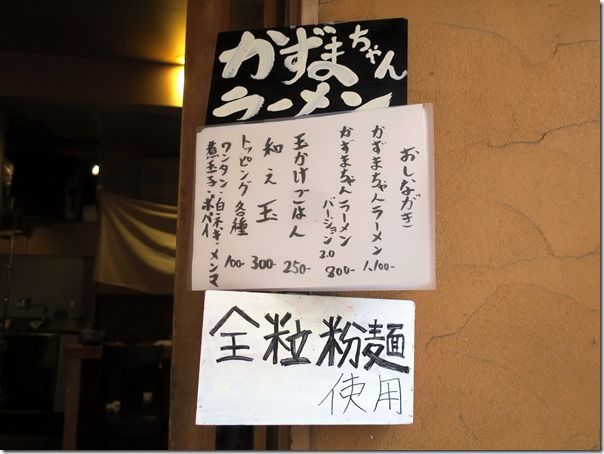 かずまちゃん
ラーメン
おしながき
かずまちゃんラーメン 1,100-
かずまちゃんラーメン バージョン2.0 800-
玉かけごはん 250-
和え玉 300-
トッピング各種 100-
ワンタン・白ネギ・メンマ
煮玉子・ポパイ
全粒粉麺
使用